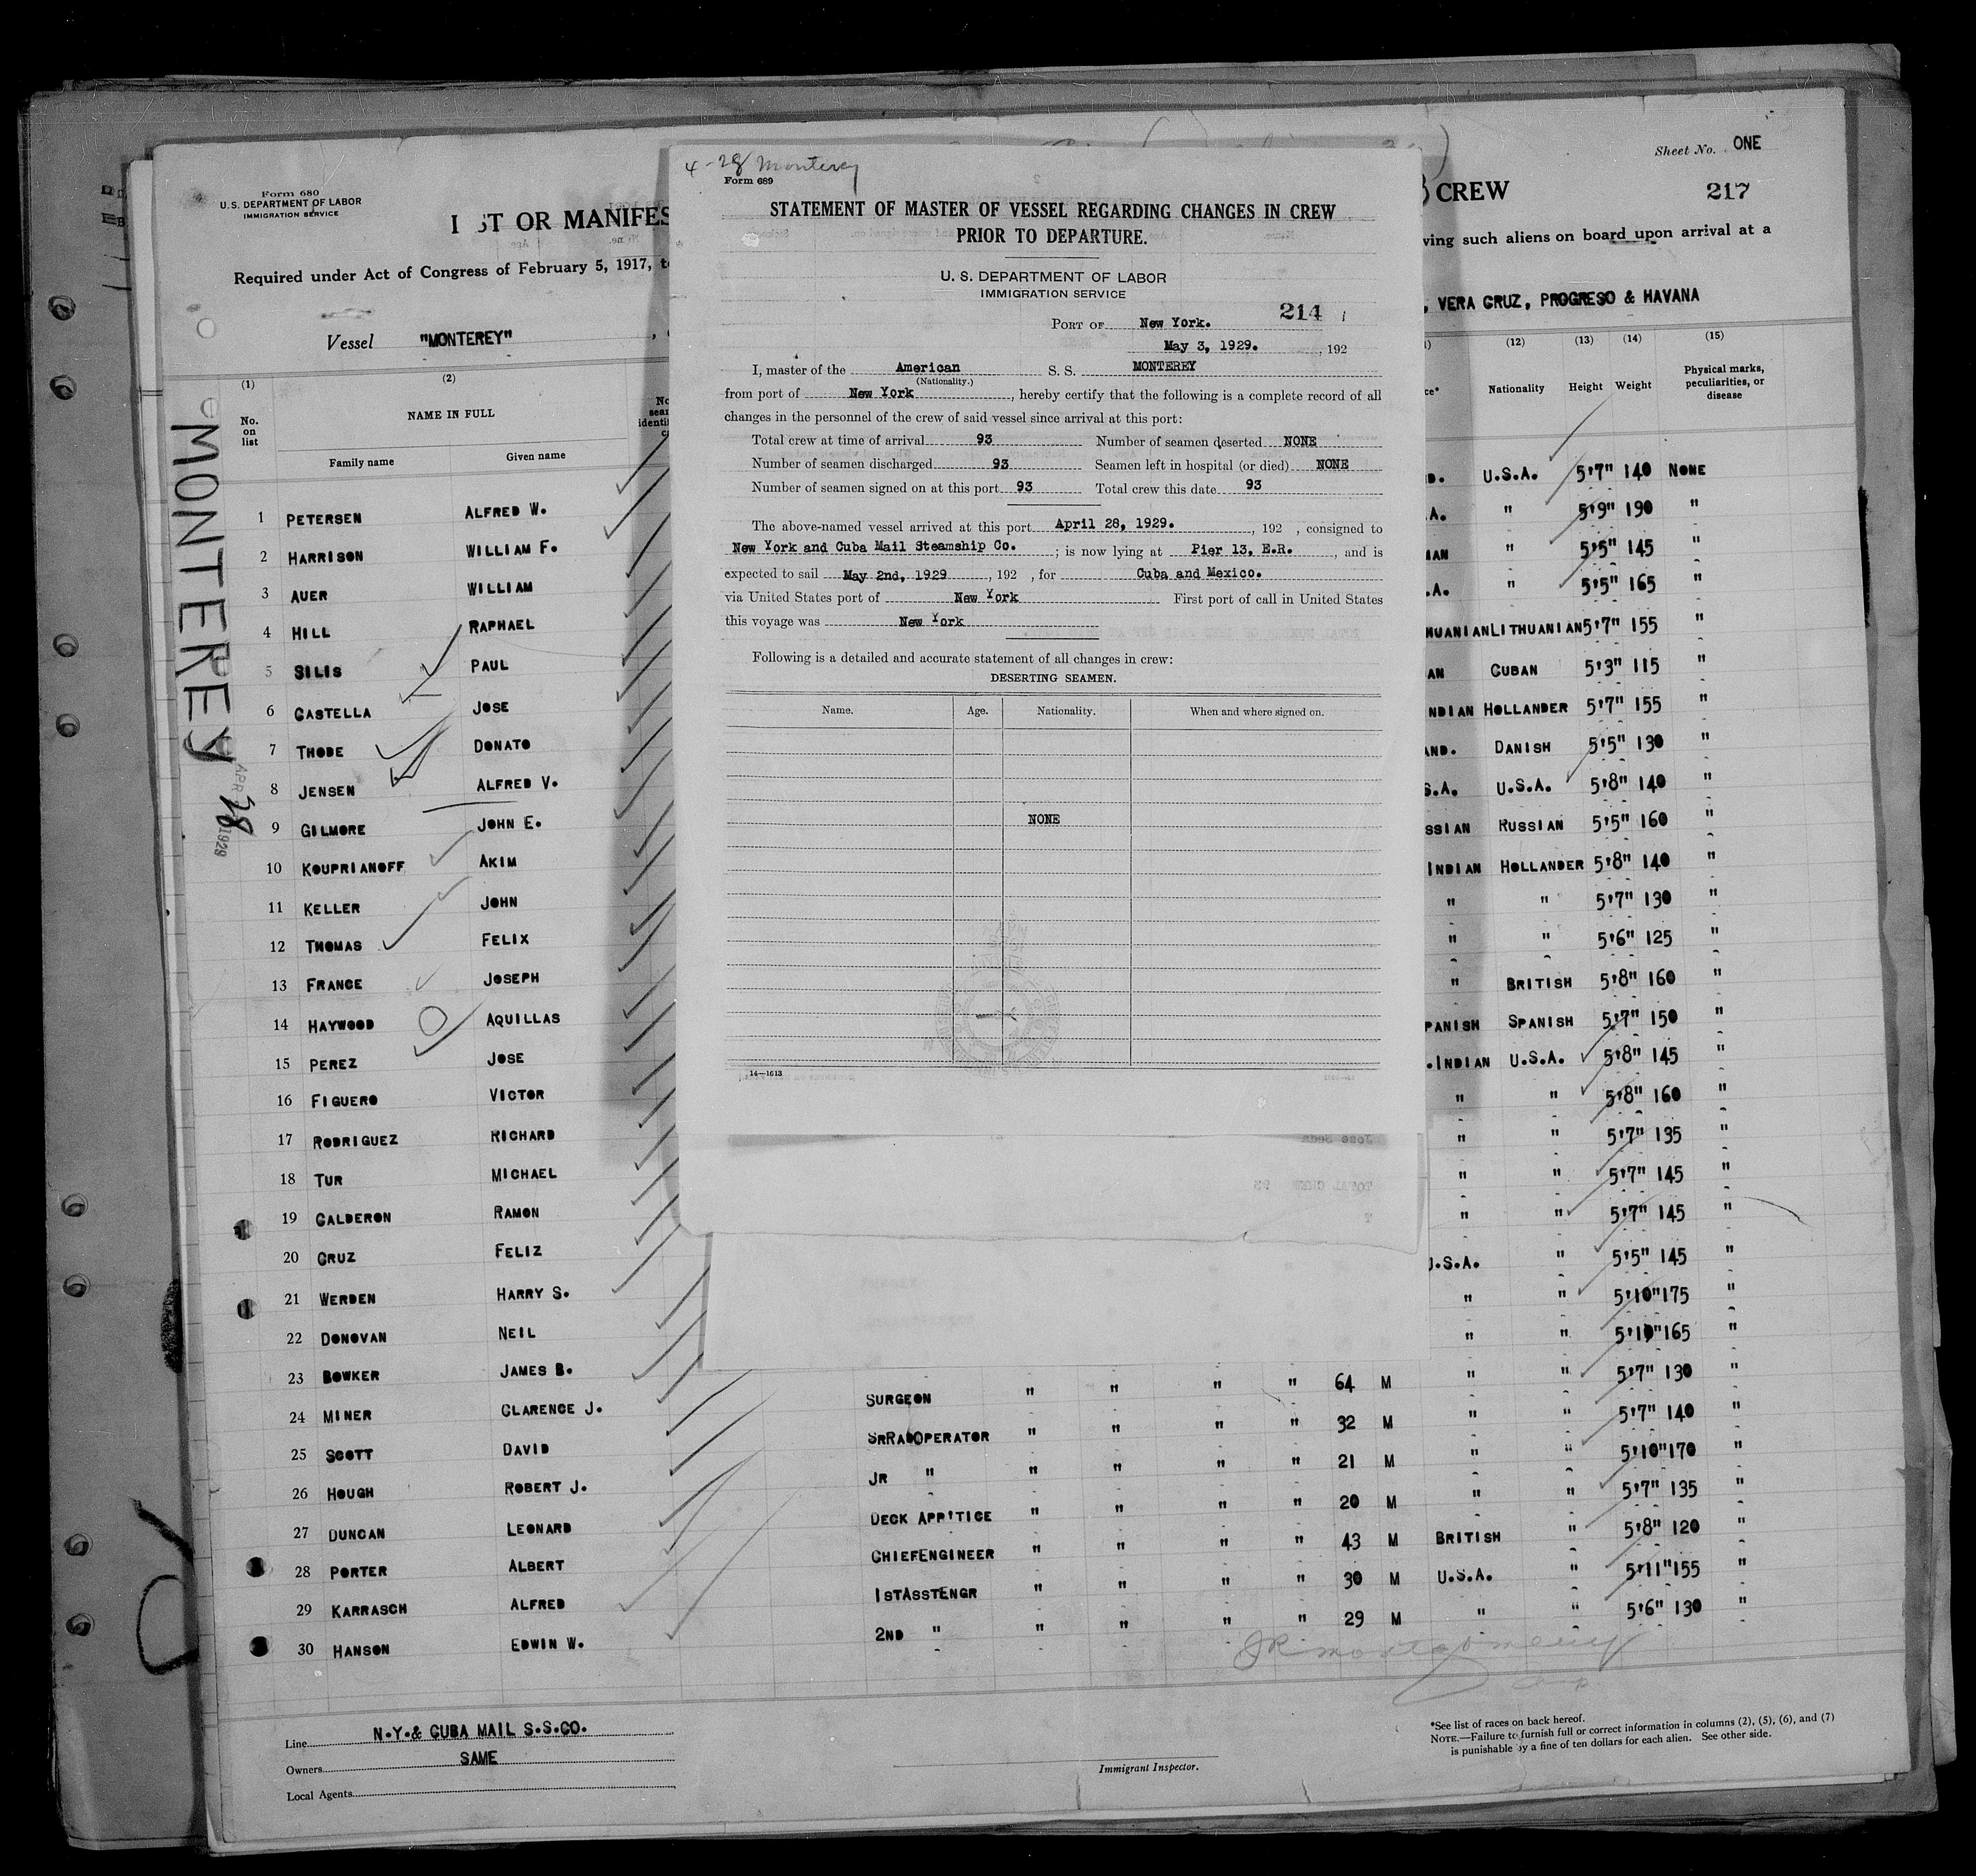 4-28 Monterey
Form 689
STATEMENT OF MASTER OF VESSEL REGARDING CHANGES IN CREW
PRIOR TO DEPARTURE.
U. S. DEPARTMENT OF LABOR
IMMIGRATION SERVICE
214
PORT OF New York.
May 3, 1929. , 192
I, master of the American S. S. MONTEREY
(Nationality.)
from port of New York , hereby certify that the following is a complete record of all
changes in the personnel of the crew of said vessel since arrival at this port:
Total crew at time of arrival 93 Number of seamen deserted NONE
Number of seamen discharged 93 Seamen left in hospital (or died) NONE
Number of seamen signed on at this port 93 Total crew this date 93
The above-named vessel arrived at this port April 28, 1929. , 192 , consigned to
New York and Cuba Mail Steamship Co. ; is now lying at Pier 13, E.R. , and is
expected to sail May 2nd, 1929 , 192 , for Cuba and Mexico.
via United States port of New York First port of call in United States
this voyage was New York
Following is a detailed and accurate statement of all changes in crew:
DESERTING SEAMEN.
Name. Age. Nationality. When and where signed on.
NONE
14—1613
Form 680
U. S. DEPARTMENT OF LABOR
IMMIGRATION SERVICE
ST OR MANIFES
Required under Act of Congress of February 5, 1917,
Vessel "MONTEREY"
Sheet No. ONE
CREW 217
ving such aliens on board upon arrival at a
, VERA CRUZ, PROGRESO & HAVANA
MONTEREY
APR 28 1929
(1) (2) (12) (13) (14) (15)
No. on list NAME IN FULL Nationality Height Weight Physical marks, peculiarities, or disease
Family name Given name
1 PETERSEN ALFRED W. U.S.A. 5'7" 140 NONE
2 HARRISON WILLIAM F. " 5'9" 190 "
3 AUER WILLIAM " 5'5" 145 "
4 HILL RAPHAEL " 5'5" 165 "
5 SILIS PAUL HUANIAN LITHUANIAN 5'7" 155 "
6 CASTELLA JOSE AN CUBAN 5'3" 115 "
7 THODE DONATO NDIAN HOLLANDER 5'7" 155 "
8 JENSEN ALFRED V. AND. DANISH 5'5" 130 "
9 GILMORE JOHN E. S.A. U.S.A. 5'8" 140 "
10 KOUPRIANOFF AKIM SSIAN RUSSIAN 5'5" 160 "
11 KELLER JOHN INDIAN HOLLANDER 5'8" 140 "
12 THOMAS FELIX " " 5'7" 130 "
13 FRANCE JOSEPH " " 5'6" 125 "
14 HAYWOOD AQUILLAS " BRITISH 5'8" 160 "
15 PEREZ JOSE PANISH SPANISH 5'7" 150 "
16 FIGUERO VICTOR .INDIAN U.S.A. 5'8" 145 "
17 RODRIGUEZ RICHARD " " 5'8" 160 "
18 TUR MICHAEL " " 5'7" 135 "
19 CALDERON RAMON " " 5'7" 145 "
20 CRUZ FELIZ " " 5'7" 145 "
21 WERDEN HARRY S. U.S.A. " 5'5" 145 "
22 DONOVAN NEIL " " 5'10" 175 "
23 BOWKER JAMES B. " " 5'10" 165 "
24 MINER CLARENCE J. SURGEON " " " " 64 M " " 5'7" 130 "
25 SCOTT DAVID SRRADOPERATOR " " " " 32 M " " 5'7" 140 "
26 HOUGH ROBERT J. JR " " " " " 21 M " " 5'10" 170 "
27 DUNCAN LEONARD DECK APP'TICE " " " " 20 M " " 5'7" 135 "
28 PORTER ALBERT CHIEFENGINEER " " " " 43 M BRITISH " 5'8" 120 "
29 KARRASCH ALFRED 1STASSTENGR " " " " 30 M U.S.A. " 5'11" 155 "
30 HANSON EDWIN W. 2ND " " " " " 29 M " " 5'6" 130 "
Line N.Y.& CUBA MAIL S.S.CO.
Owners SAME
Local Agents
Immigrant Inspector.
*See list of races on back hereof.
NOTE.—Failure to furnish full or correct information in columns (2), (5), (6), and (7)
is punishable by a fine of ten dollars for each alien. See other side.